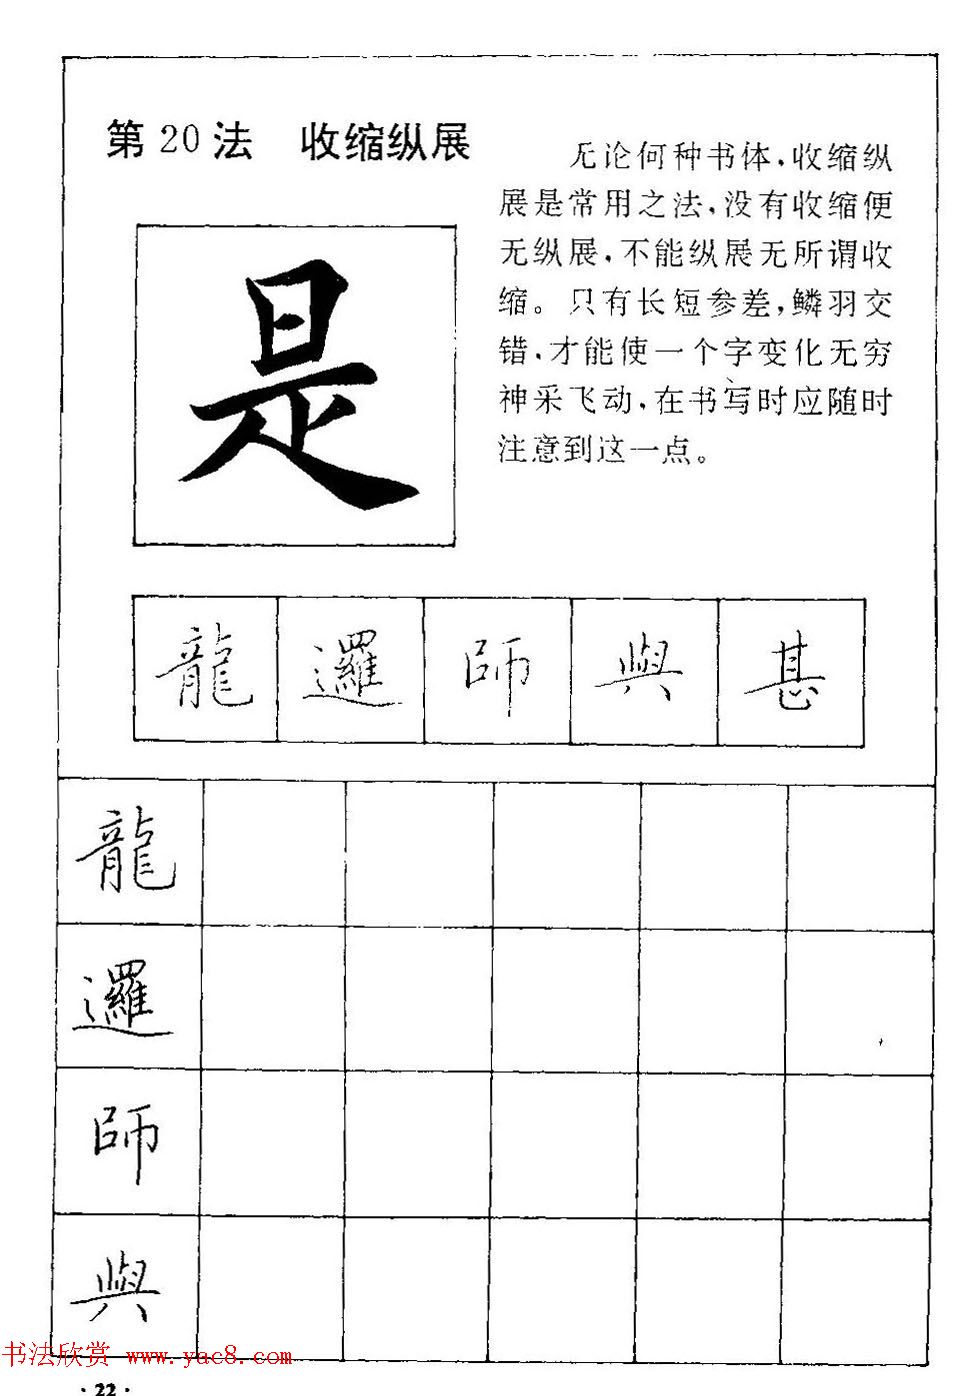 第20法　收缩纵展
无论何种书体,收缩纵
展是常用之法,没有收缩便
无纵展,不能纵展无所谓收
缩。只有长短参差,鳞羽交
错,才能使一个字变化无穷
神采飞动,在书写时应随时
注意到这一点。
是
龍 邏 師 與 甚
龍
邏
師
與
书法欣赏 www.yac8.com
·22·